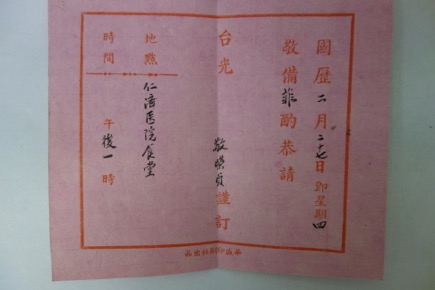 國歷二月二十七日即星期四
敬備菲酌恭請
台光
謹訂
地點 仁濟医院食堂
時間 午後一時